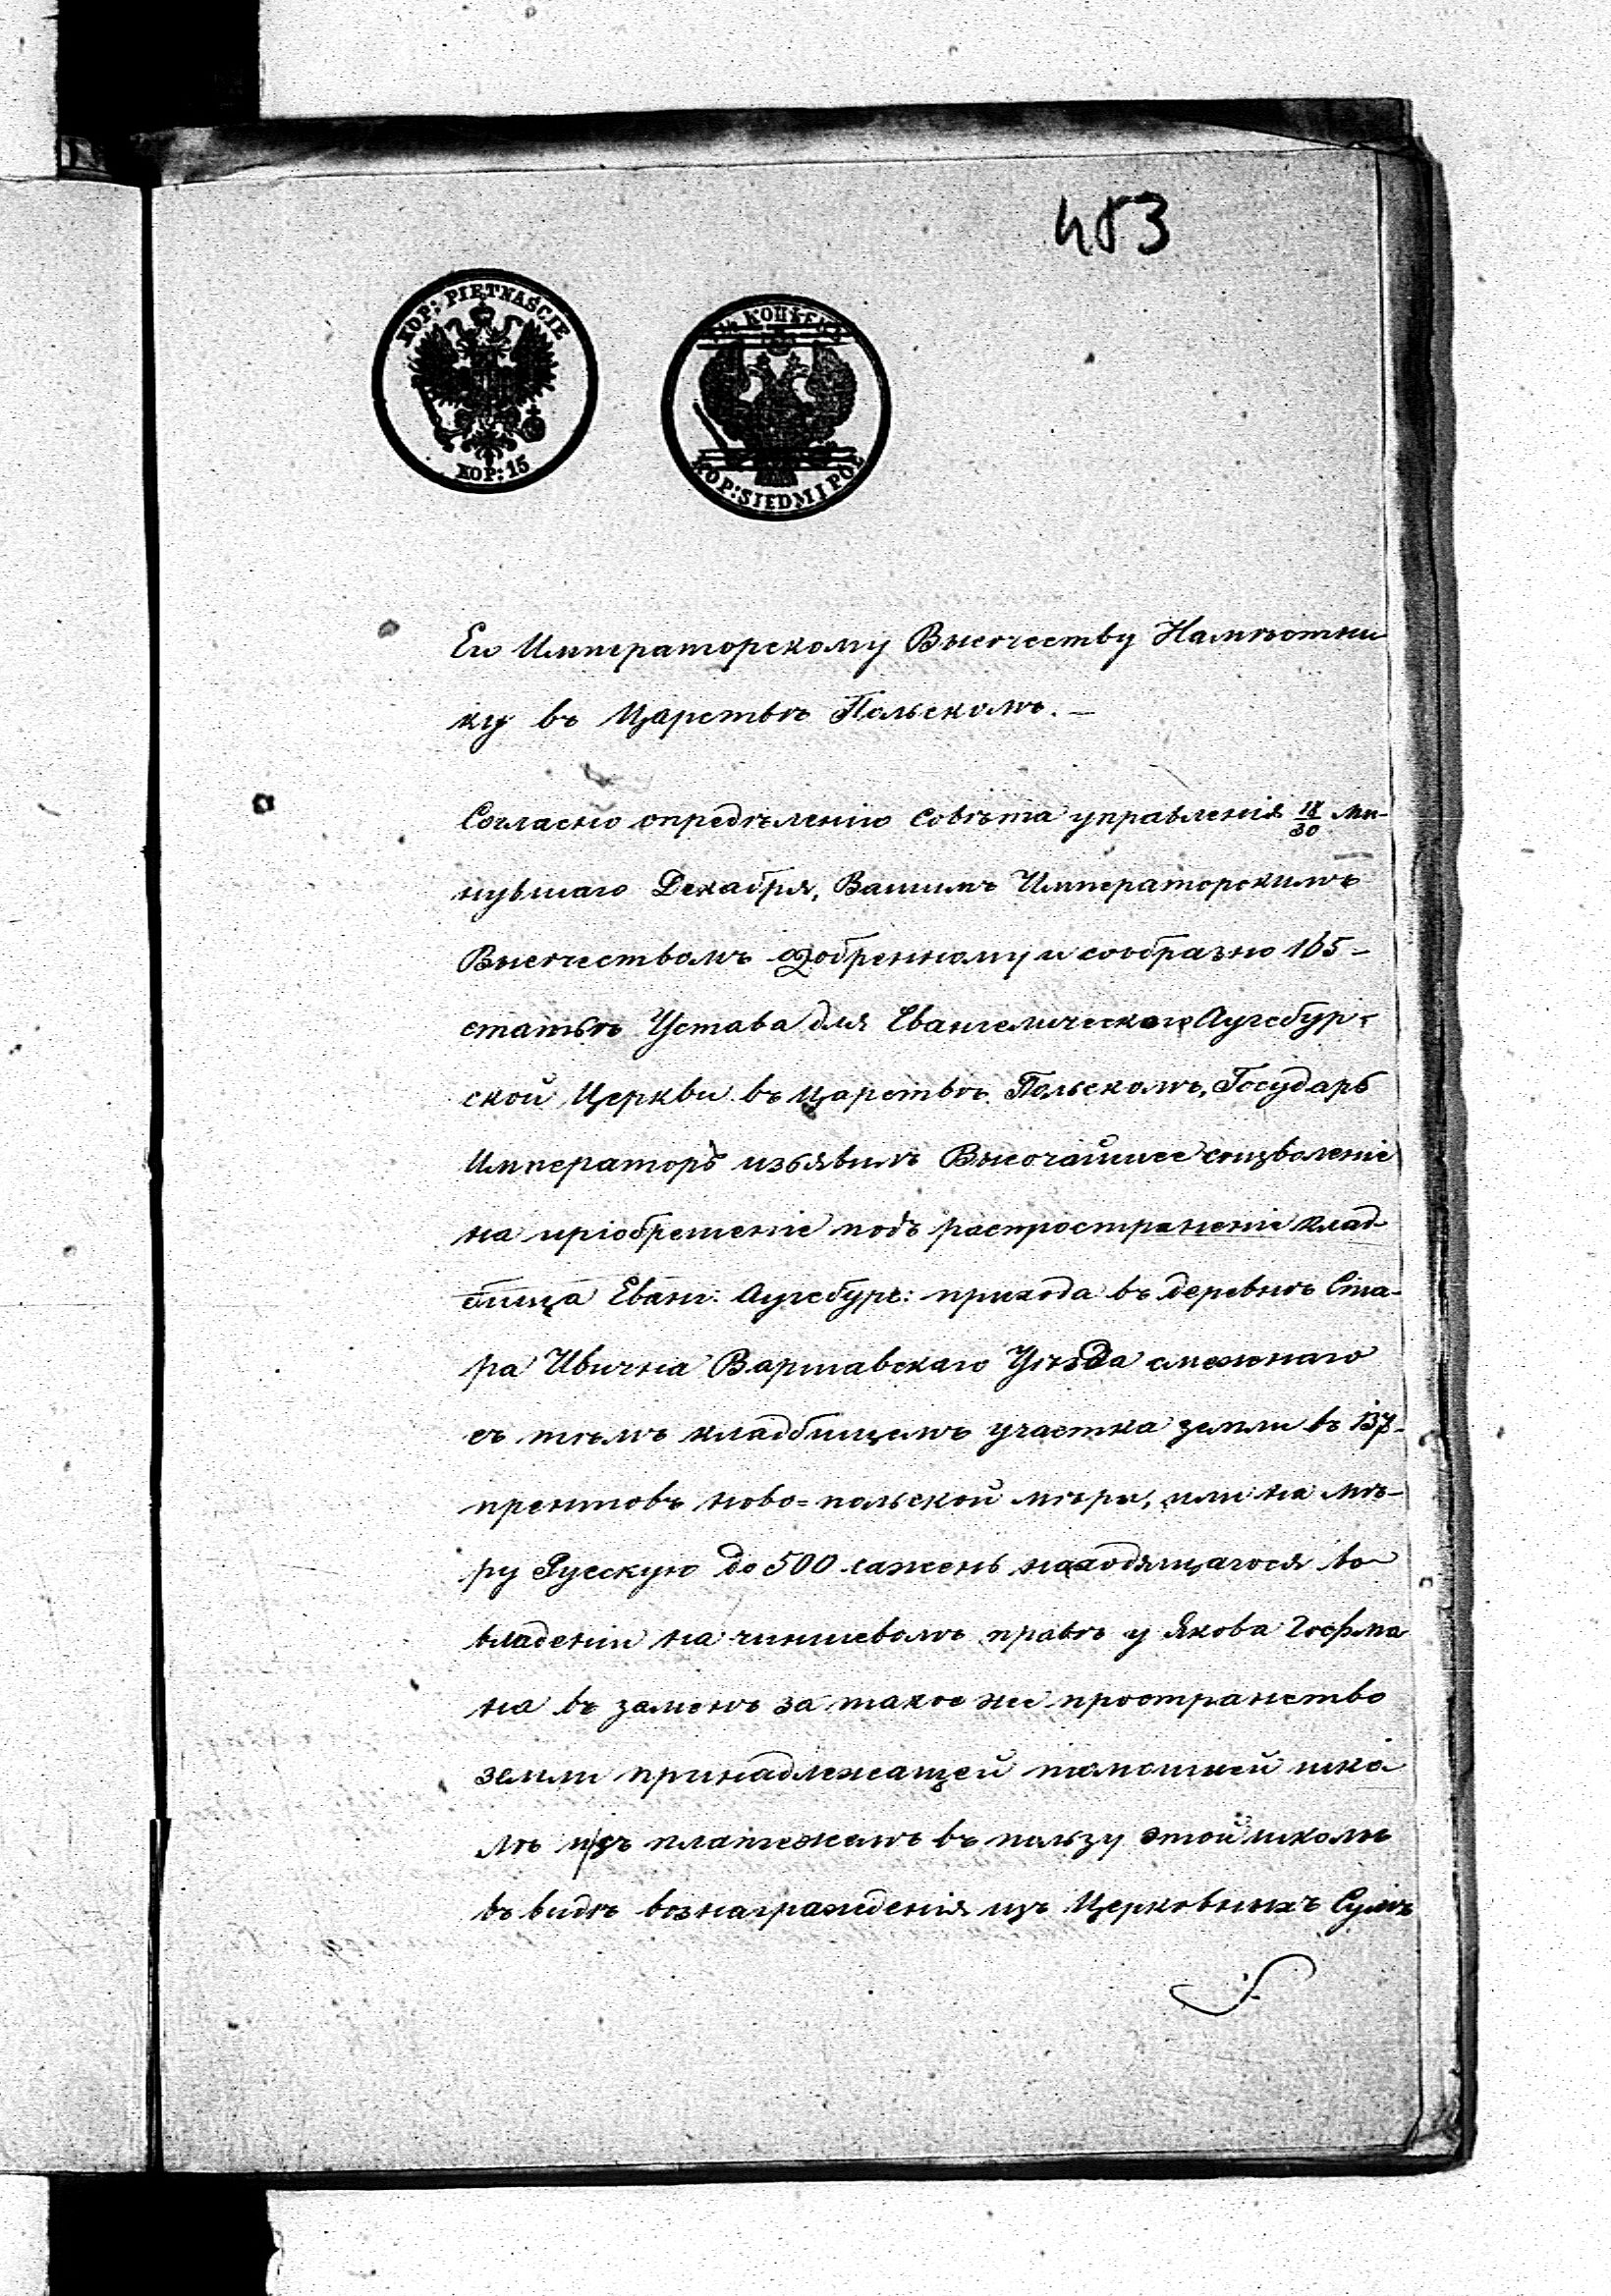 483
KOP: PIĘTNAŚCIE
KOP: 15
КОПѢЕКЪ
KOP: SIEDM I PÓŁ
Его Императорскому Высочеству Намѣстни
ку въ Царствѣ Польскомъ. —
Согласно опредѣленію Совѣта управленія 18/30 ми-
нувшаго Декабря, Вашимъ Императорскимъ
Высочествомъ одобренному и сообразно 165 –
статьѣ Устава для Евангелическо Аугсбур-
ской Церкви въ Царствѣ Польскомъ, Государь
Императоръ изъявилъ Высочайшее соизволеніе
на пріобретеніе подъ распространеніе клад-
бища Еванг: Аугсбург: прихода въ деревнѣ Ста-
ра Ивична Варшавскаго Уѣзда смежнаго
съ тѣмъ кладбищемъ участка земли въ 137-
прентовъ ново=польской мѣры, или на мѣ-
ру Русскую до 500 сажень находящагося во
владеніи на чиншевомъ правѣ у Якова Гофма
на въ заменъ за такое же пространство
земли принадлежащей тамошней шко
лѣ съ платежемъ въ пользу этой школы
въ видѣ вознагражденія изъ Церковныхъ Сумъ